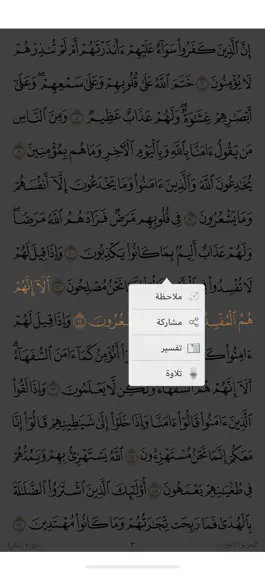 إِنَّ الَّذِينَ كَفَرُوا سَوَاءٌ عَلَيْهِمْ ءَأَنذَرْتَهُمْ أَمْ لَمْ تُنذِرْهُمْ
لَا يُؤْمِنُونَ ٦ خَتَمَ اللَّهُ عَلَىٰ قُلُوبِهِمْ وَعَلَىٰ سَمْعِهِمْ ۖ وَعَلَىٰ
أَبْصَارِهِمْ غِشَاوَةٌ ۖ وَلَهُمْ عَذَابٌ عَظِيمٌ ٧ وَمِنَ النَّاسِ
مَن يَقُولُ ءَامَنَّا بِاللَّهِ وَبِالْيَوْمِ الْآخِرِ وَمَا هُم بِمُؤْمِنِينَ ٨
يُخَادِعُونَ اللَّهَ وَالَّذِينَ ءَامَنُوا وَمَا يَخْدَعُونَ إِلَّا أَنفُسَهُمْ
وَمَا يَشْعُرُونَ ٩ فِي قُلُوبِهِم مَّرَضٌ فَزَادَهُمُ اللَّهُ مَرَضًا ۖ
وَلَهُمْ عَذَابٌ أَلِيمٌ بِمَا كَانُوا يَكْذِبُونَ ١٠ وَإِذَا قِيلَ لَهُمْ
لَا تُفْسِدُوا نَحْنُ مُصْلِحُونَ ١١ أَلَا إِنَّهُمْ
هُمُ ١٢ وَإِذَا قِيلَ لَهُمْ
ءَامِنُوا أَنُؤْمِنُ كَمَا ءَامَنَ السُّفَهَاءُ ۗ
أَلَا إِنَّهُمْ هُمُ لَّا يَعْلَمُونَ ١٣ وَإِذَا لَقُوا
الَّذِينَ ءَامَنُوا قَالُوا ءَامَنَّا وَإِذَا خَلَوْا إِلَىٰ شَيَاطِينِهِمْ قَالُوا إِنَّا
مَعَكُمْ إِنَّمَا نَحْنُ مُسْتَهْزِءُونَ ١٤ اللَّهُ يَسْتَهْزِئُ بِهِمْ وَيَمُدُّهُمْ
فِي طُغْيَانِهِمْ يَعْمَهُونَ ١٥ أُولَٰئِكَ الَّذِينَ اشْتَرَوُا الضَّلَالَةَ
بِالْهُدَىٰ فَمَا رَبِحَت تِّجَارَتُهُمْ وَمَا كَانُوا مُهْتَدِينَ ١٦
ملاحظة
مشاركة
تفسير
تلاوة
٣